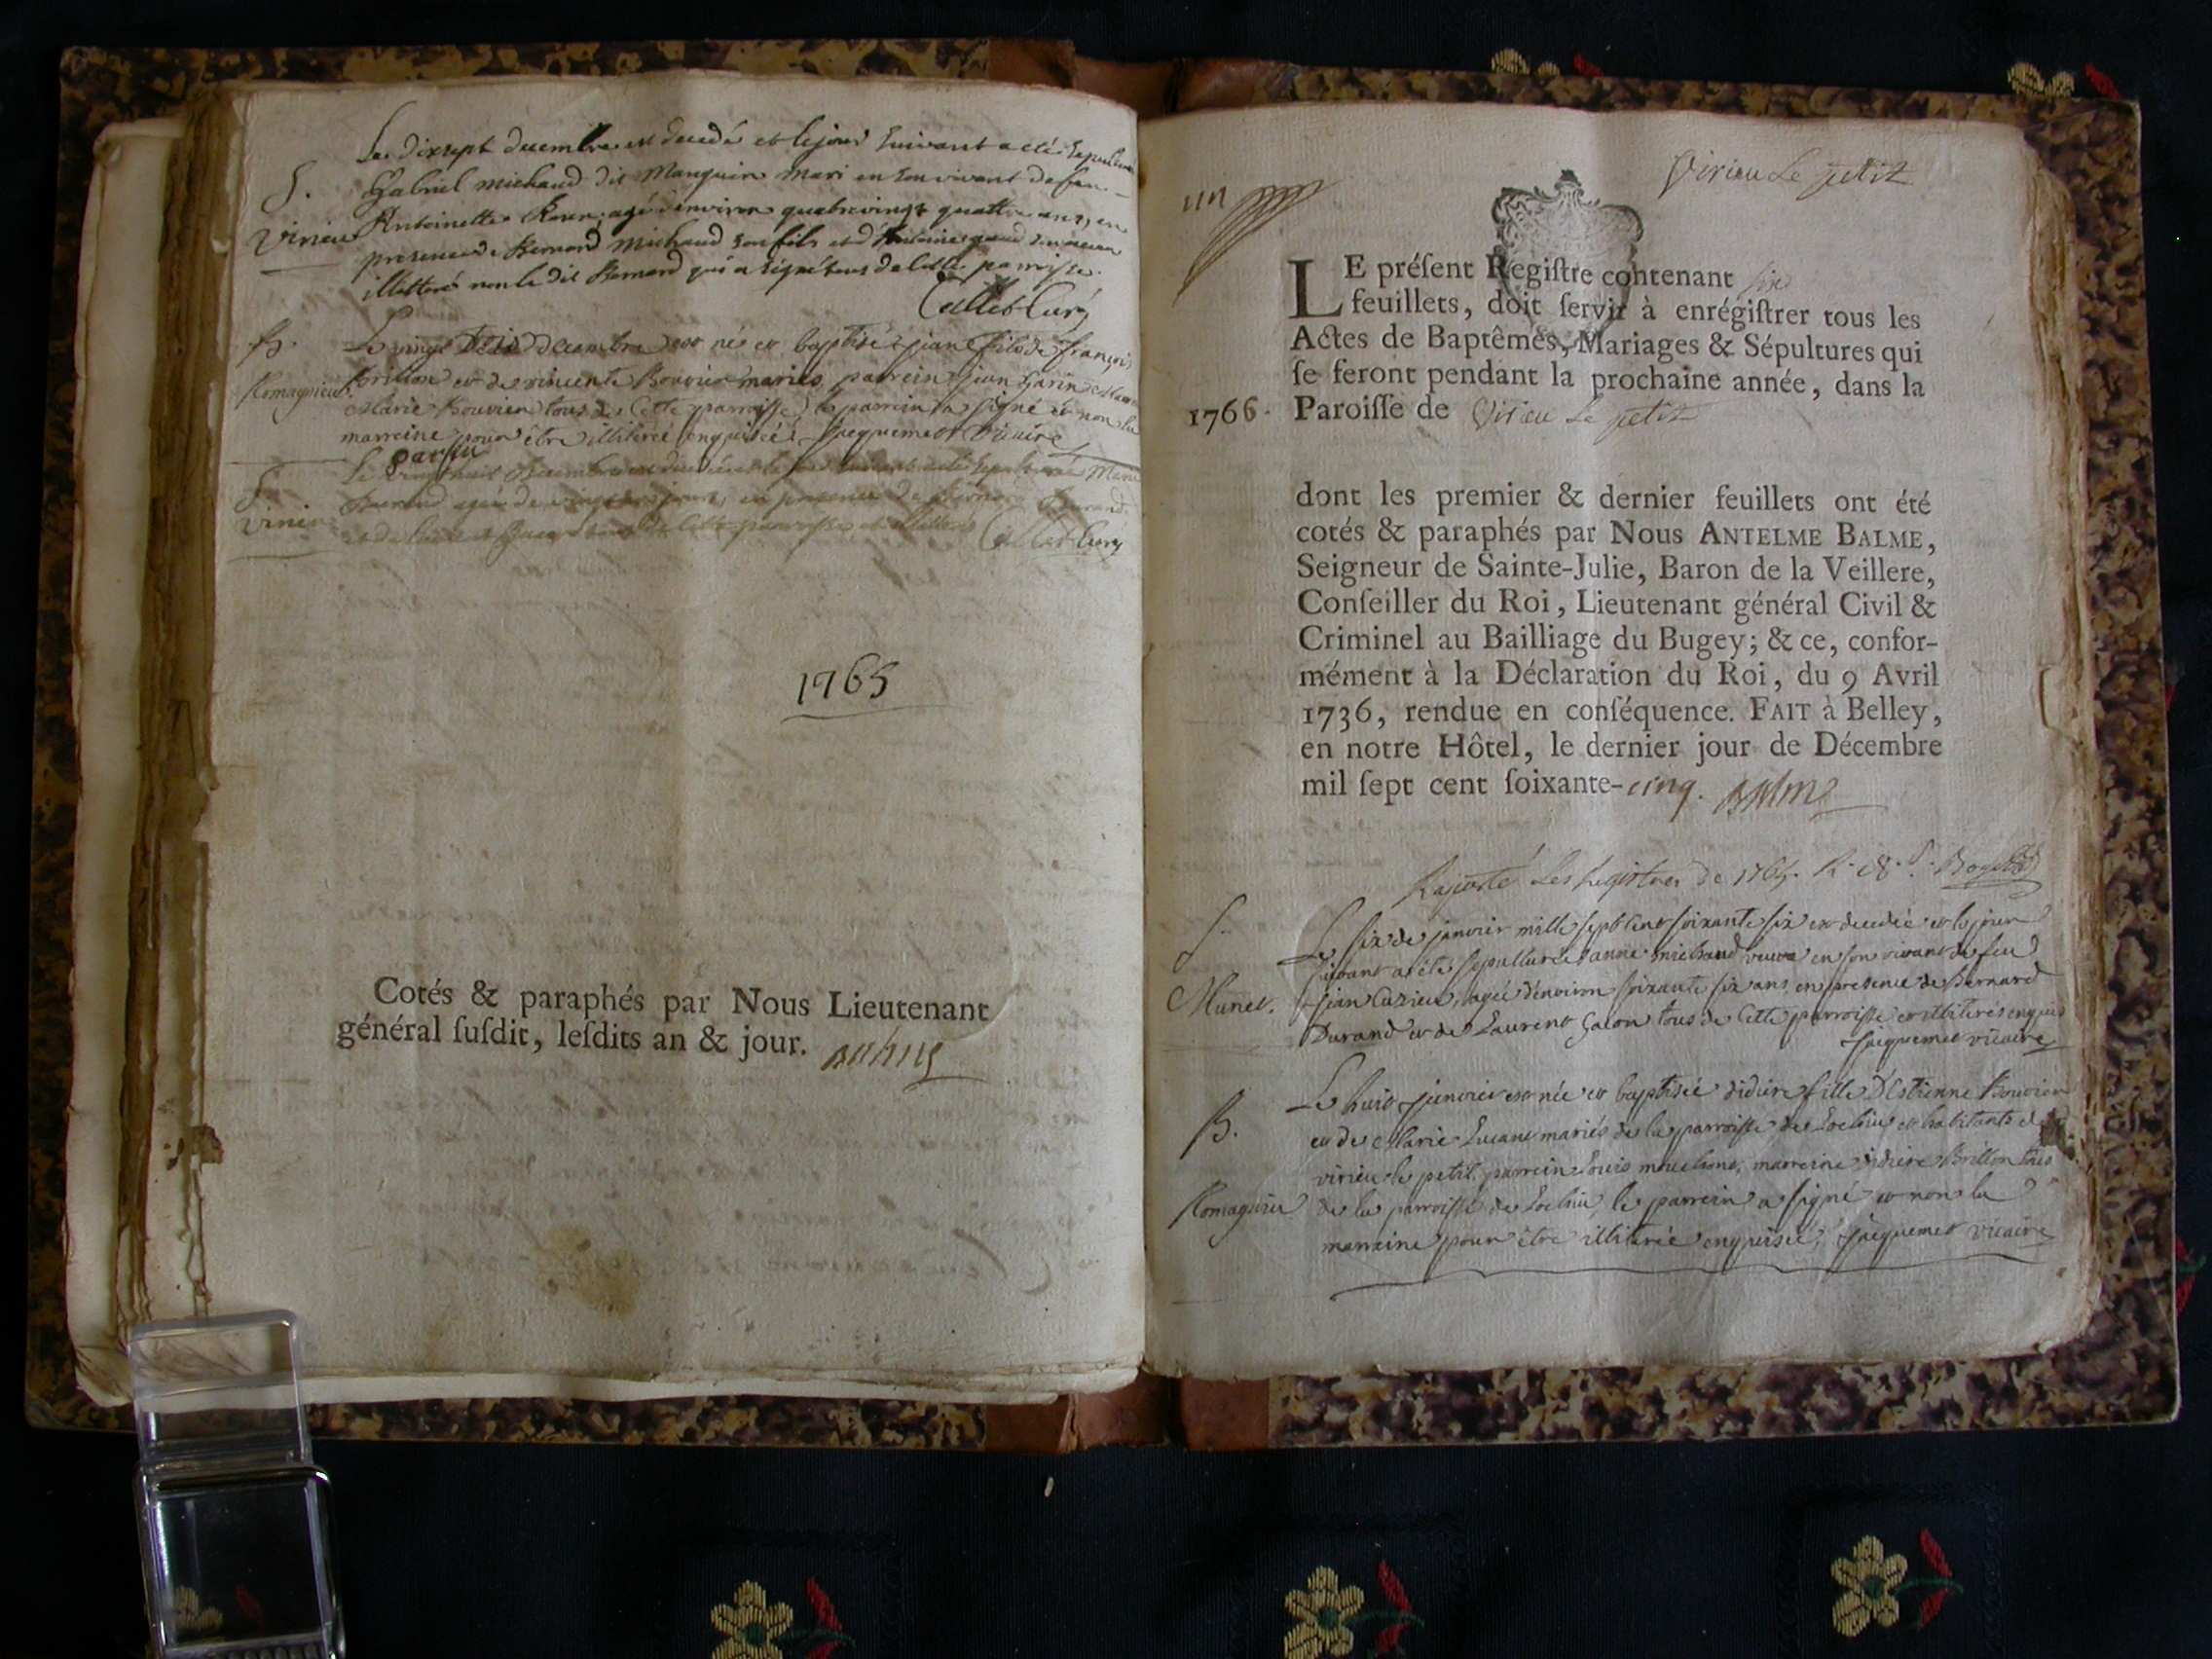 Le dixsept decembre est decedé et lejour suivant a été sepulturé
S. Gabriel michaud dit Manguin mari en son vivant de feue
Virieu Antoinette agé denviron quatrevingt quattre ans, en
presence de Bernard michaud son fils et d'Antoine
illettré non le dit Bernard qui a signé tous de cette parroisse.
Callet Curé
B. Le vingt trois decembre est né et baptisé jean fils de françois
Romagnieu Brillon et de vincente Bouvier mariés, parrein jean Garin
Marie Bouvier tous de Cette parroisse, le parrein a signé et non la
marreine pour être illiterée enquisée jacquemet vicaire
S. Le vingthuit decembre est decedée et le jour suivant a été sepulturée Marie
Virieu Durand agée de jours, en presence de Bernard Durand
et de Laurent tous de Cette parroisse et illiterés Callet Curé
1765
Cotés & paraphés par Nous Lieutenant
général ſuſdit, leſdits an & jour. Balme
Virieu Le petit
un
LE préſent Regiſtre contenant six
feuillets, doit ſervir à enrégiſtrer tous les
Actes de Baptêmes, Mariages & Sépultures qui
ſe feront pendant la prochaine année, dans la
1766. Paroiſſe de Virieu Le petit
dont les premier & dernier feuillets ont été
cotés & paraphés par Nous ANTELME BALME,
Seigneur de Sainte-Julie, Baron de la Veillere,
Conſeiller du Roi, Lieutenant général Civil &
Criminel au Bailliage du Bugey; & ce, confor-
mément à la Déclaration du Roi, du 9 Avril
1736, rendue en conſéquence. FAIT à Belley,
en notre Hôtel, le dernier jour de Décembre
mil ſept cent ſoixante-cinq. Balme
Raporté Les Registres de 1765.
S. Le six de janvier mille sept cent soixante six est decedée et le jour
suivant a été sepulturée anne michaud veuve en son vivant de feu
Munet. jean Cuzieu, agée d'environ soixante six ans, en presence de Bernard
Durand et de Laurent Galon tous de Cette parroisse et illiterés enquis
jacquemet vicaire
Le huit janvier est née et baptisée didiere fille D'Estienne Bouvier
B. et de Marie Luçane mariés de la parroisse de Lochieu et habitants de
virieu le petit, parrein Louis mouchons, marreine didiere Brillon tous
Romagnieu de la parroisse de Lochieu, le parrein a signé et non la
marreine pour être illiterée enquisée, jacquemet vicaire